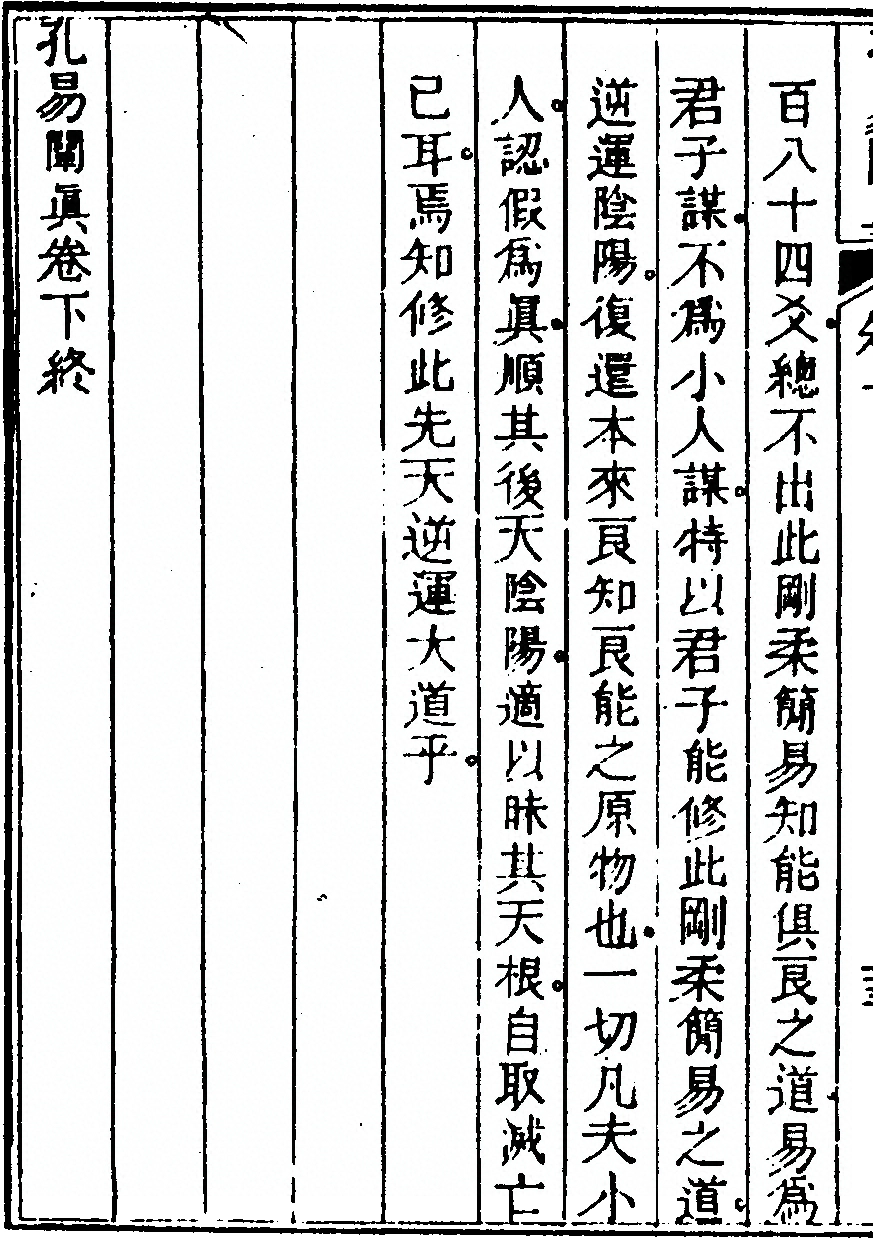 百八十四爻總不出此剛柔簡易知能俱良之道易爲
君子謀不爲小人謀特以君子能修此剛柔簡易之道
逆運陰陽復還本來良知良能之原物也一切凡夫小
人認假爲眞順其後天陰陽適以昧其天根自取滅亡
已耳焉知修此先天逆運大道乎
孔易闡眞卷下終